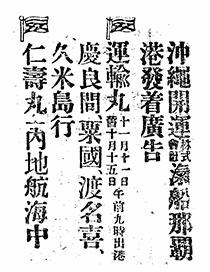 沖繩開運株式會社滊船那覇
港發着廣告
運輸丸十一月十一日舊十月十五日午前九時出港
慶良間、粟國、渡名喜、
久米島行
仁壽丸一內地航海中